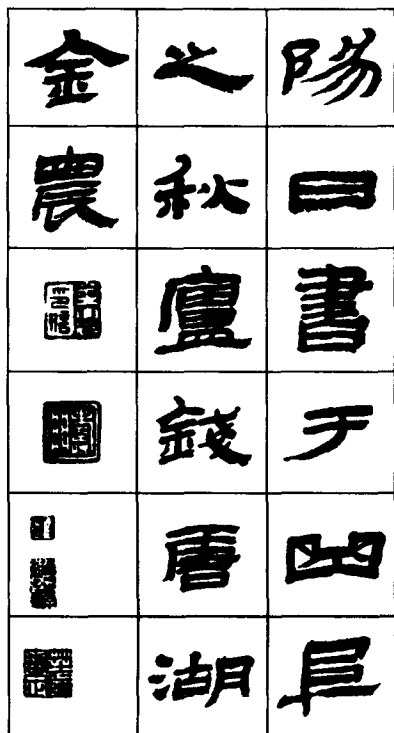 陽日書于曲阜
之秋廬錢唐湖
金農